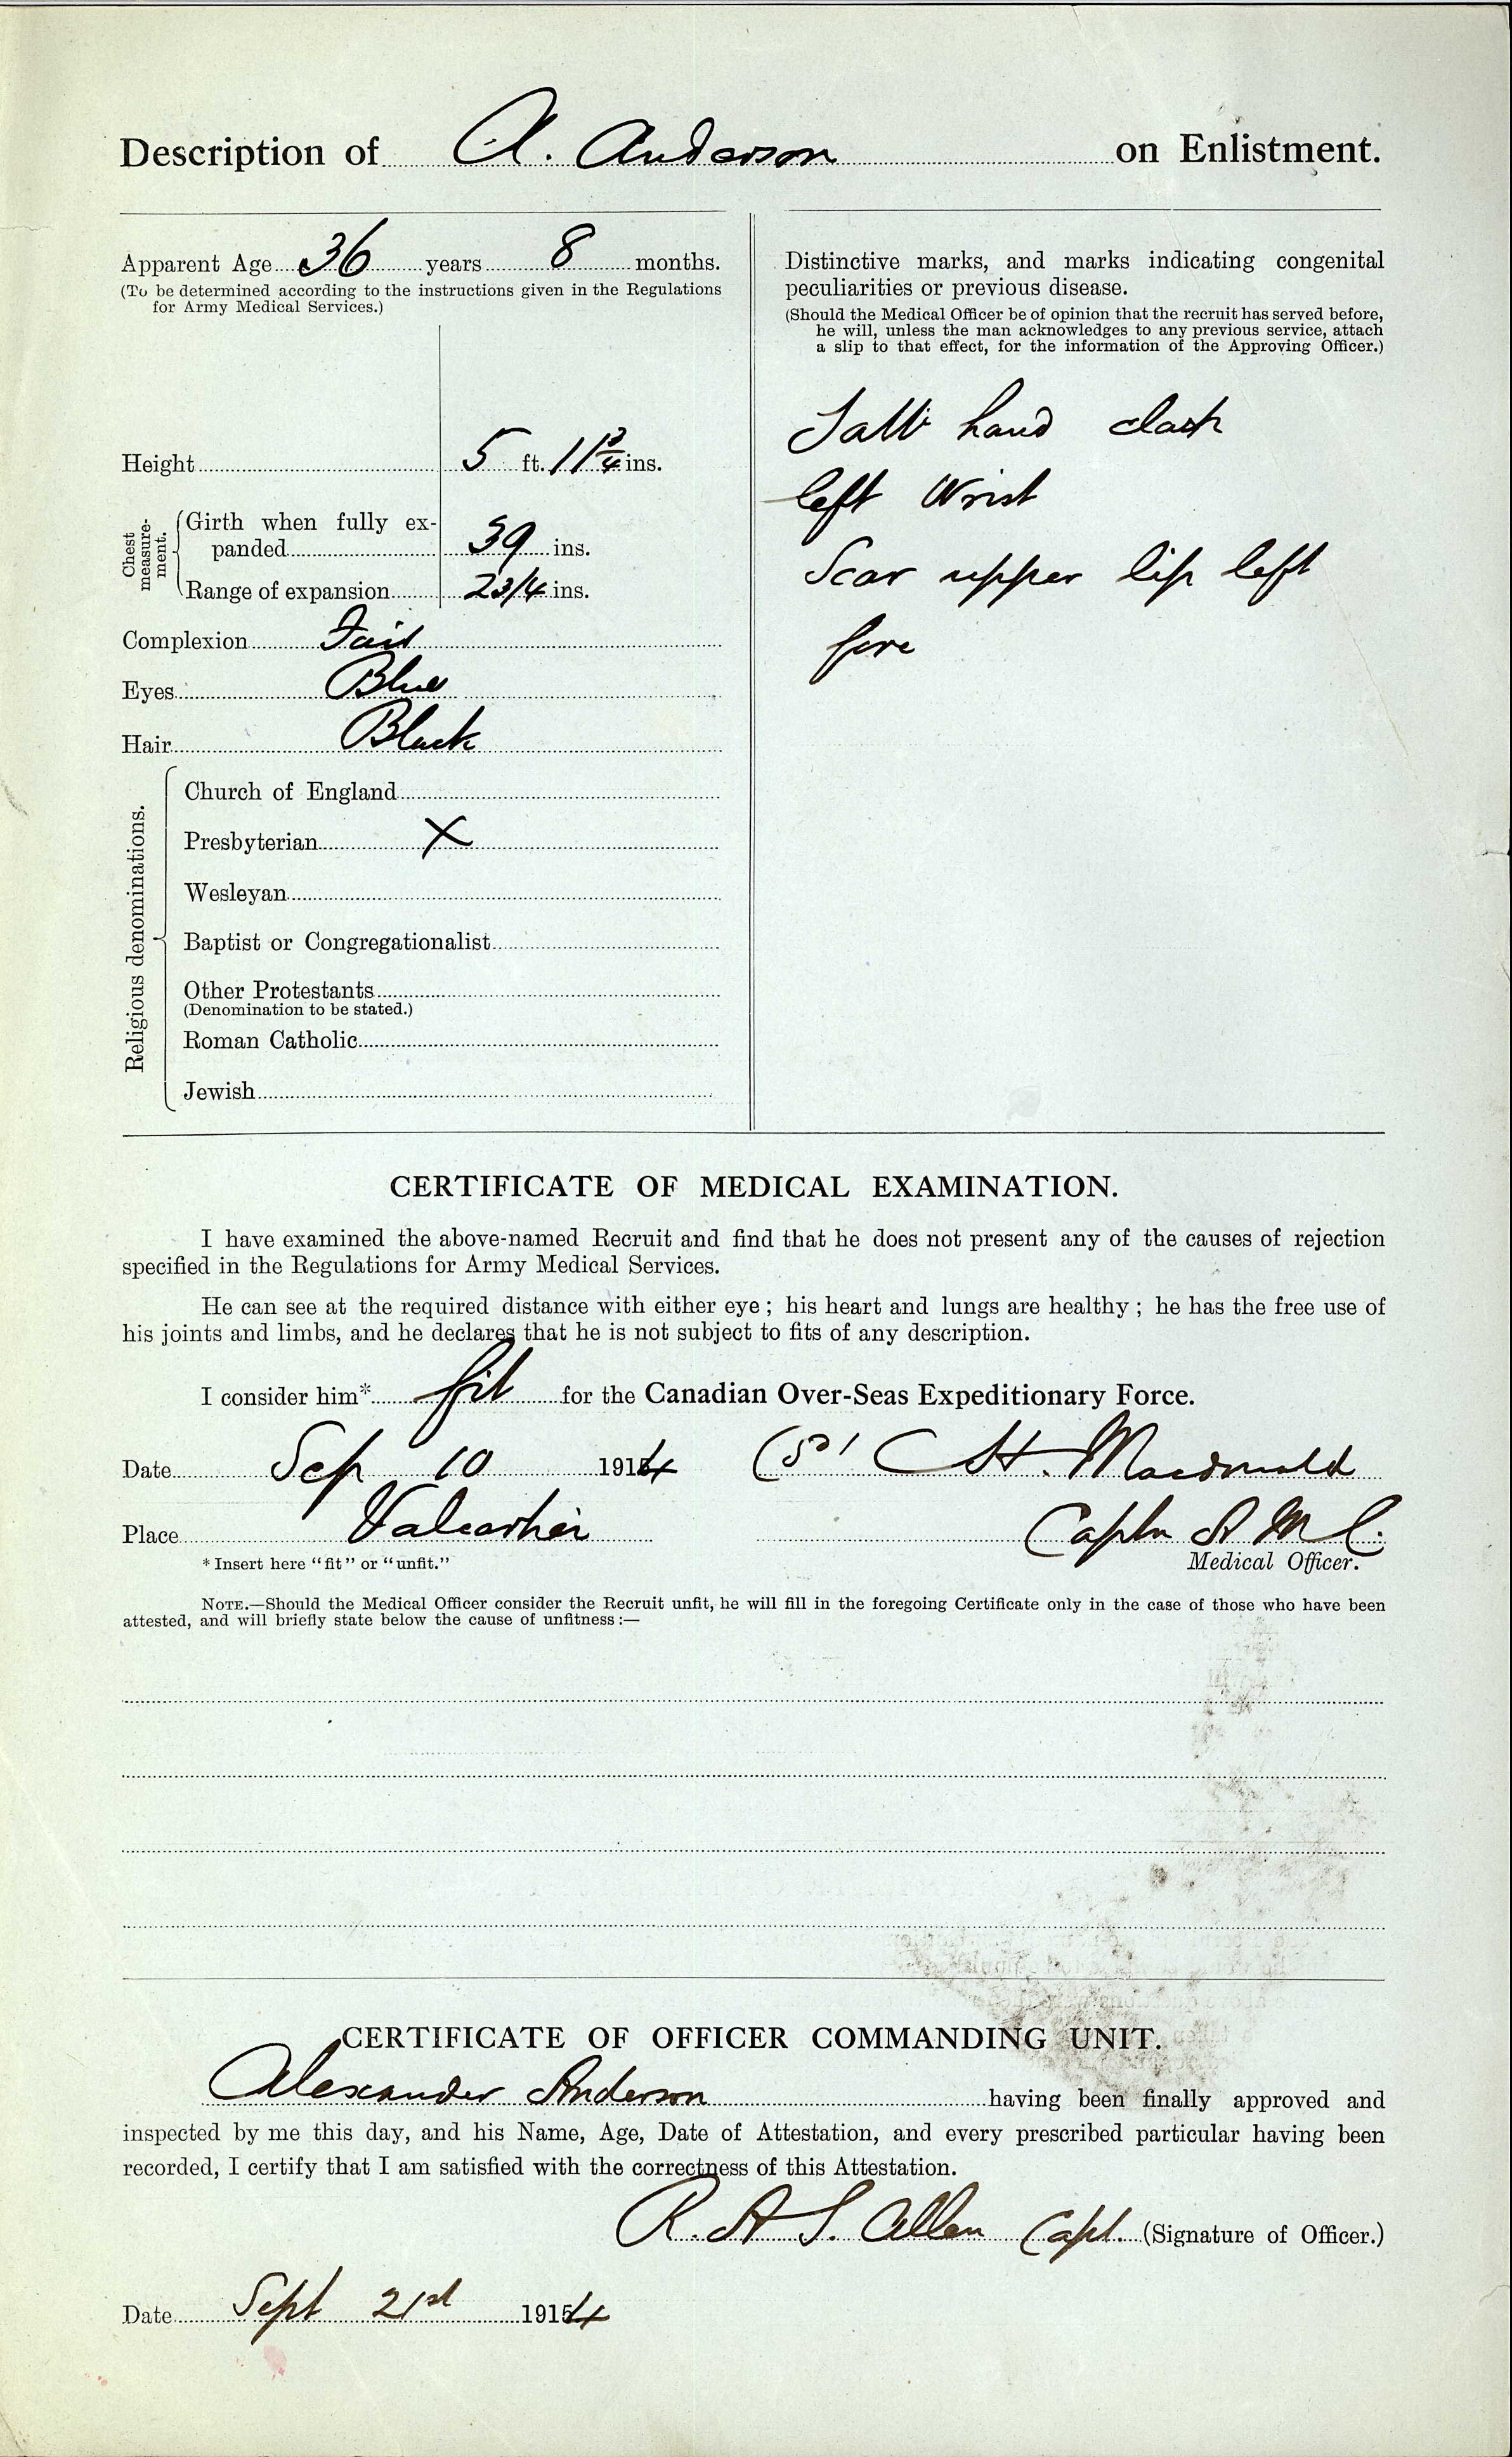 Description of A. Anderson on Enlistment.
Apparent Age 36 years 8 months.
(To be determined according to the instructions given in the Regulations
for Army Medical Services.)
Height 5 ft. 11 3/4 ins.
Chest measure-ment.
Girth when fully ex-
panded 39 ins.
Range of expansion 2 3/4 ins.
Complexion Fair
Eyes Blue
Hair Black
Religious denominations.
Church of England
Presbyterian X
Wesleyan
Baptist or Congregationalist
Other Protestants
(Denomination to be stated.)
Roman Catholic
Jewish
Distinctive marks, and marks indicating congenital
peculiarities or previous disease.
(Should the Medical Officer be of opinion that the recruit has served before,
he will, unless the man acknowledges to any previous service, attach
a slip to that effect, for the information of the Approving Officer.)
hand
left Wrist
Scar upper lip left
CERTIFICATE OF MEDICAL EXAMINATION.
I have examined the above-named Recruit and find that he does not present any of the causes of rejection
specified in the Regulations for Army Medical Services.
He can see at the required distance with either eye; his heart and lungs are healthy; he has the free use of
his joints and limbs, and he declares that he is not subject to fits of any description.
I consider him* fit for the Canadian Over-Seas Expeditionary Force.
Date Sep 10 1914 Macdonald
Place Valcartier Captn A M C.
* Insert here "fit" or "unfit."
Medical Officer.
NOTE.—Should the Medical Officer consider the Recruit unfit, he will fill in the foregoing Certificate only in the case of those who have been
attested, and will briefly state below the cause of unfitness:—
CERTIFICATE OF OFFICER COMMANDING UNIT.
Alexander Anderson having been finally approved and
inspected by me this day, and his Name, Age, Date of Attestation, and every prescribed particular having been
recorded, I certify that I am satisfied with the correctness of this Attestation.
R. A S. Allen Capt. (Signature of Officer.)
Date Sept 21st 1914